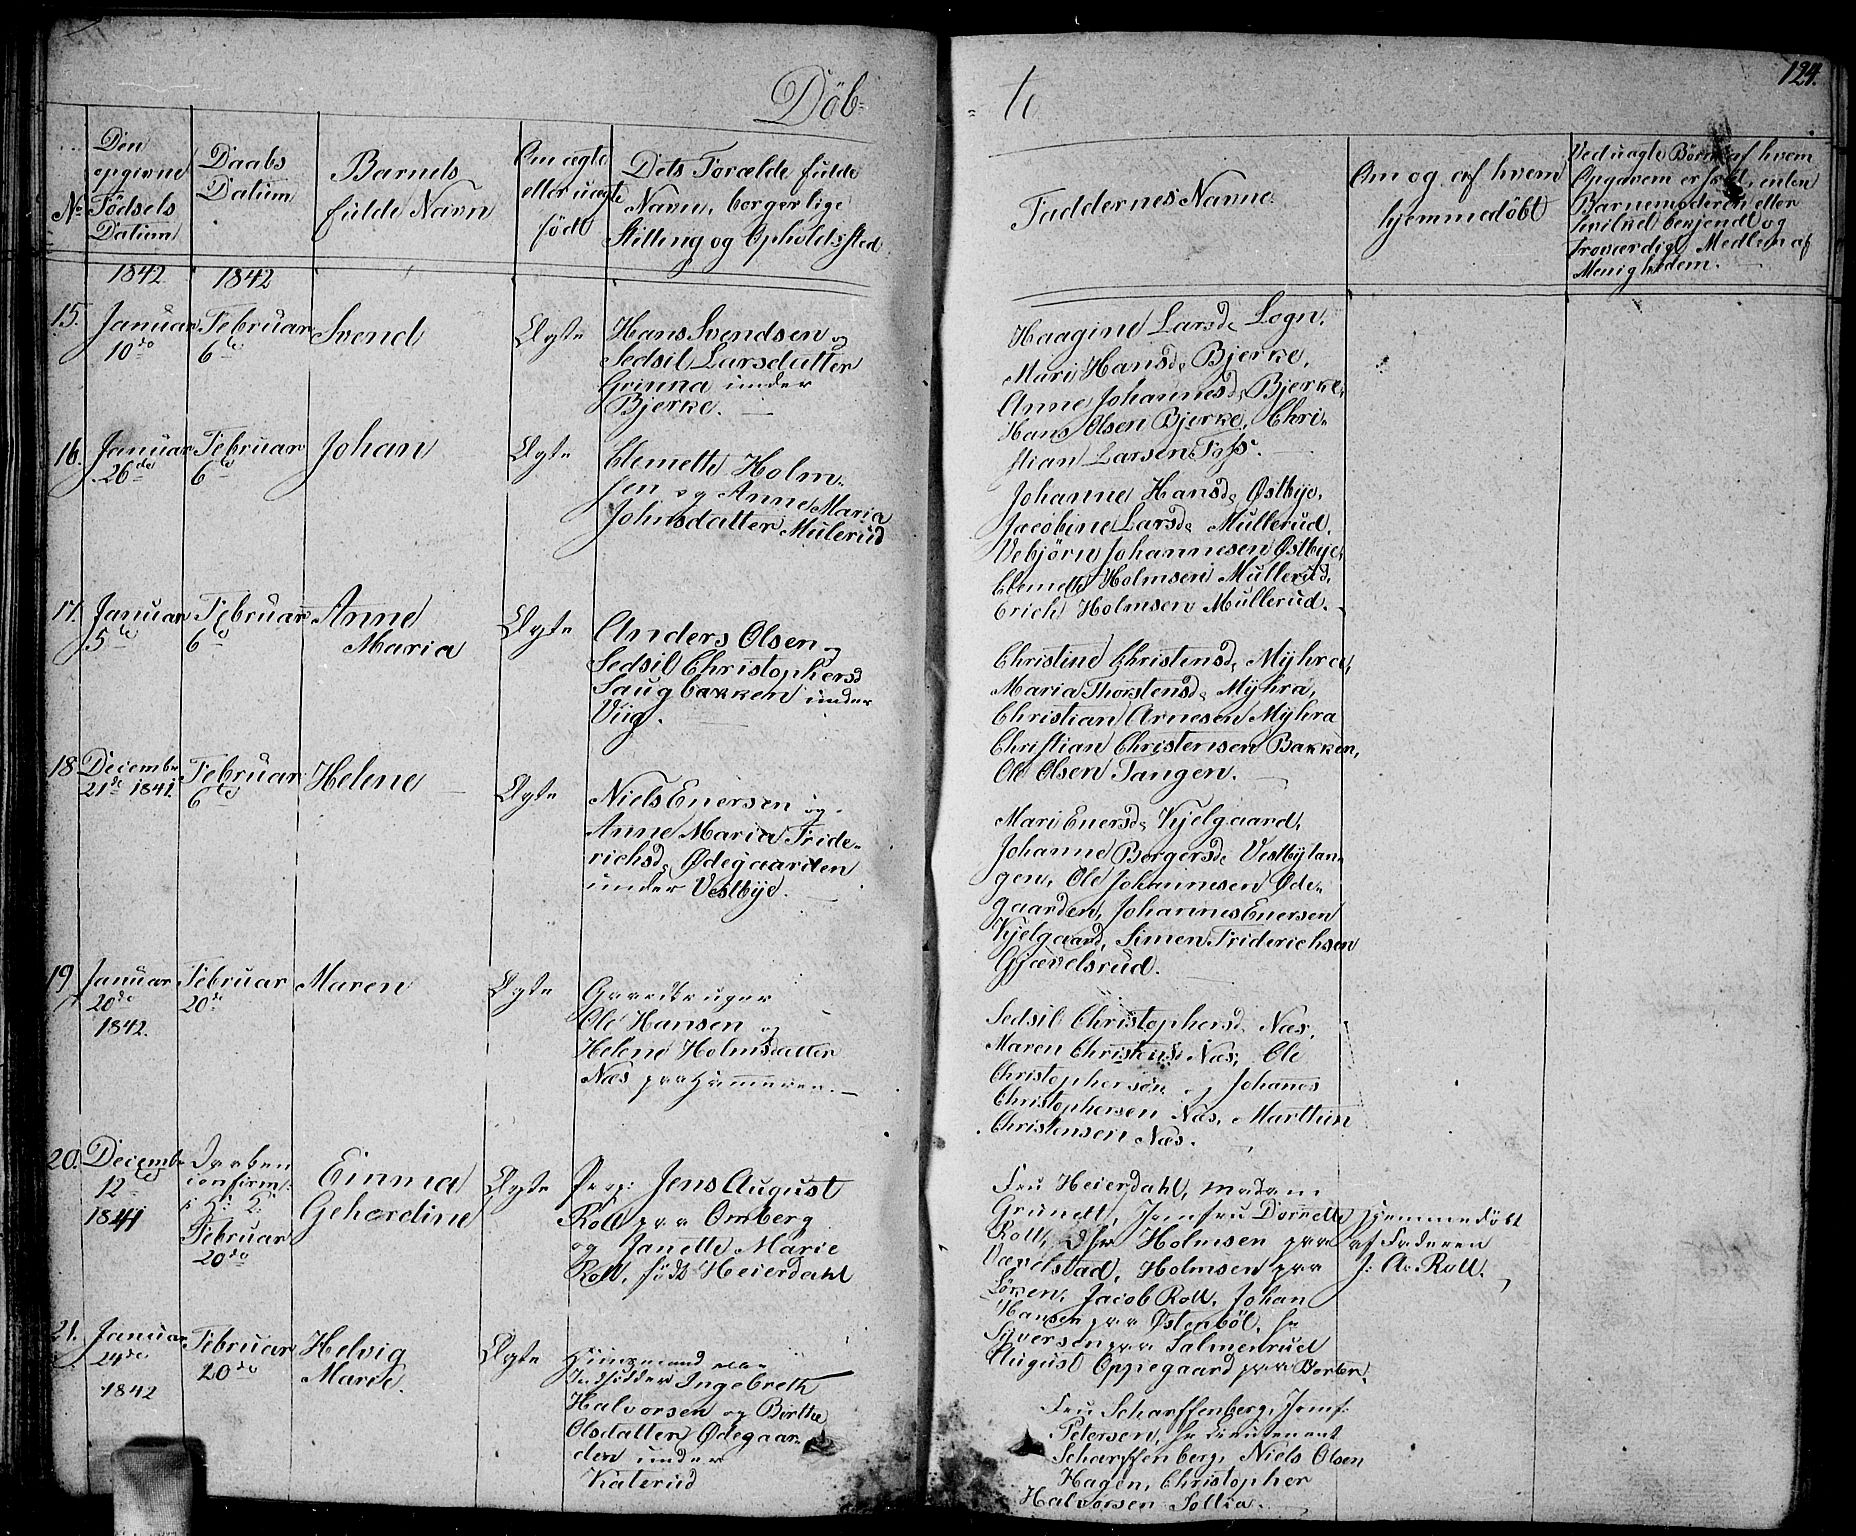 124.
Döb=
= te
No
Den opgivne Födsels Datum
Daabs Datum
Barnets fulde Navn
Om ægte eller uægte födt
Dets Forælde fulde Navn, borgerlige Stilling og Opholdssted
Faddernes Navne.
Om og af hvem hjemmedöbt
Ved uægte Börn af hvem Opgaven er skeet, enten Barnemoderen eller Troværdigt Medlem af Menigheden.
1842
1842
15.
Januar
10de
Februar
6te
Svend
Ægte
Hans Svendsen og
Sedsil Larsdatter
Grinna under
Bjerke.
Haagine Larsd. Logn,
Mari Hansd. Bjerke,
Anne Johannesd. Bjerke,
Hans Olsen Bjerke, Chri-
stian Larsen Foss.
16.
Januar
26de
Februar
6te
Johan
Ægte
Clemette Holm-
sen og Anne Maria
Johnsdatter Mulerud
Johanne Hansd. Østbye,
Jacobine Larsd. Mullerud,
Vebjörn Johannesen Østbye,
Clemet Holmsen Mullerud,
Erich Holmsen Mullerud.
17.
Januar
5te
Februar
6te
Anne
Maria
Ægte
Anders Olsen og
Sedsil Christophersd
Saugbakken under
Viig.
Christine Christensd. Myhra,
Maria Thorstensd. Myhra,
Christian Arnesen Myhra
Christian Christensen Bakken,
Ole Olsen Tangen.
18
Decembr
21de 1841.
Februar
6te
Helene
Ægte
Niels Enersen og
Anne Maria Fride-
richsd. Ødegaarden
under Vestbye.
Mari Enersd. Kjelgaard,
Johanne Borgersd. Vestbytan-
gen, Ole Johannesen Øde-
gaarden, Johannes Enersen
Kjelgaard, Simen Friderichsen
Gjævelsrud.
19
Januar
20de
1842.
Februar
20de
Maren
Ægte
Gaardbruger
Ole Hansen og
Helene Holmsdatter
Næs paa Hammeren.
Sedsil Christophersd. Næs,
Maren Christensd Næs, Ole
Christophersön og Johanes
Christophersen Næs, Marthin
Christensen Næs.
20.
Decembr
12te
1841
Daaben
confirm:
i H: K:
Februar
20de
Emma
Gehardine
Ægte
Prop: Jens August
Roll paa Omberg
og Janette Marie
Roll, födt Heierdahl
Fru Heierdahl, Madam
Grundt, Jomfru Dorrette
Roll, Hr Holmsen paa
Vævelstad, Holmsen paa
Löken, Jacob Roll, Johan
Hansen paa Østenböl, Hr
Syversen paa Salmerud
August Oppegaard paa Borter.
Hjemmedöbt
af Faderen
J. A. Roll.
21.
Januar
24de
1842
Februar
20de
Helvig
Marie.
Ægte
Huusmand
Indsidder Ingebreth
Halvorsen og Birthe
Olsdatter Ødegaar-
den under
Katerud
Fru Scharffenberg, Jomf:
Petersen, Hr Lieutenant
Scharffenberg, Niels Olsen
Hagen, Christopher
Halvorsen Sollia.